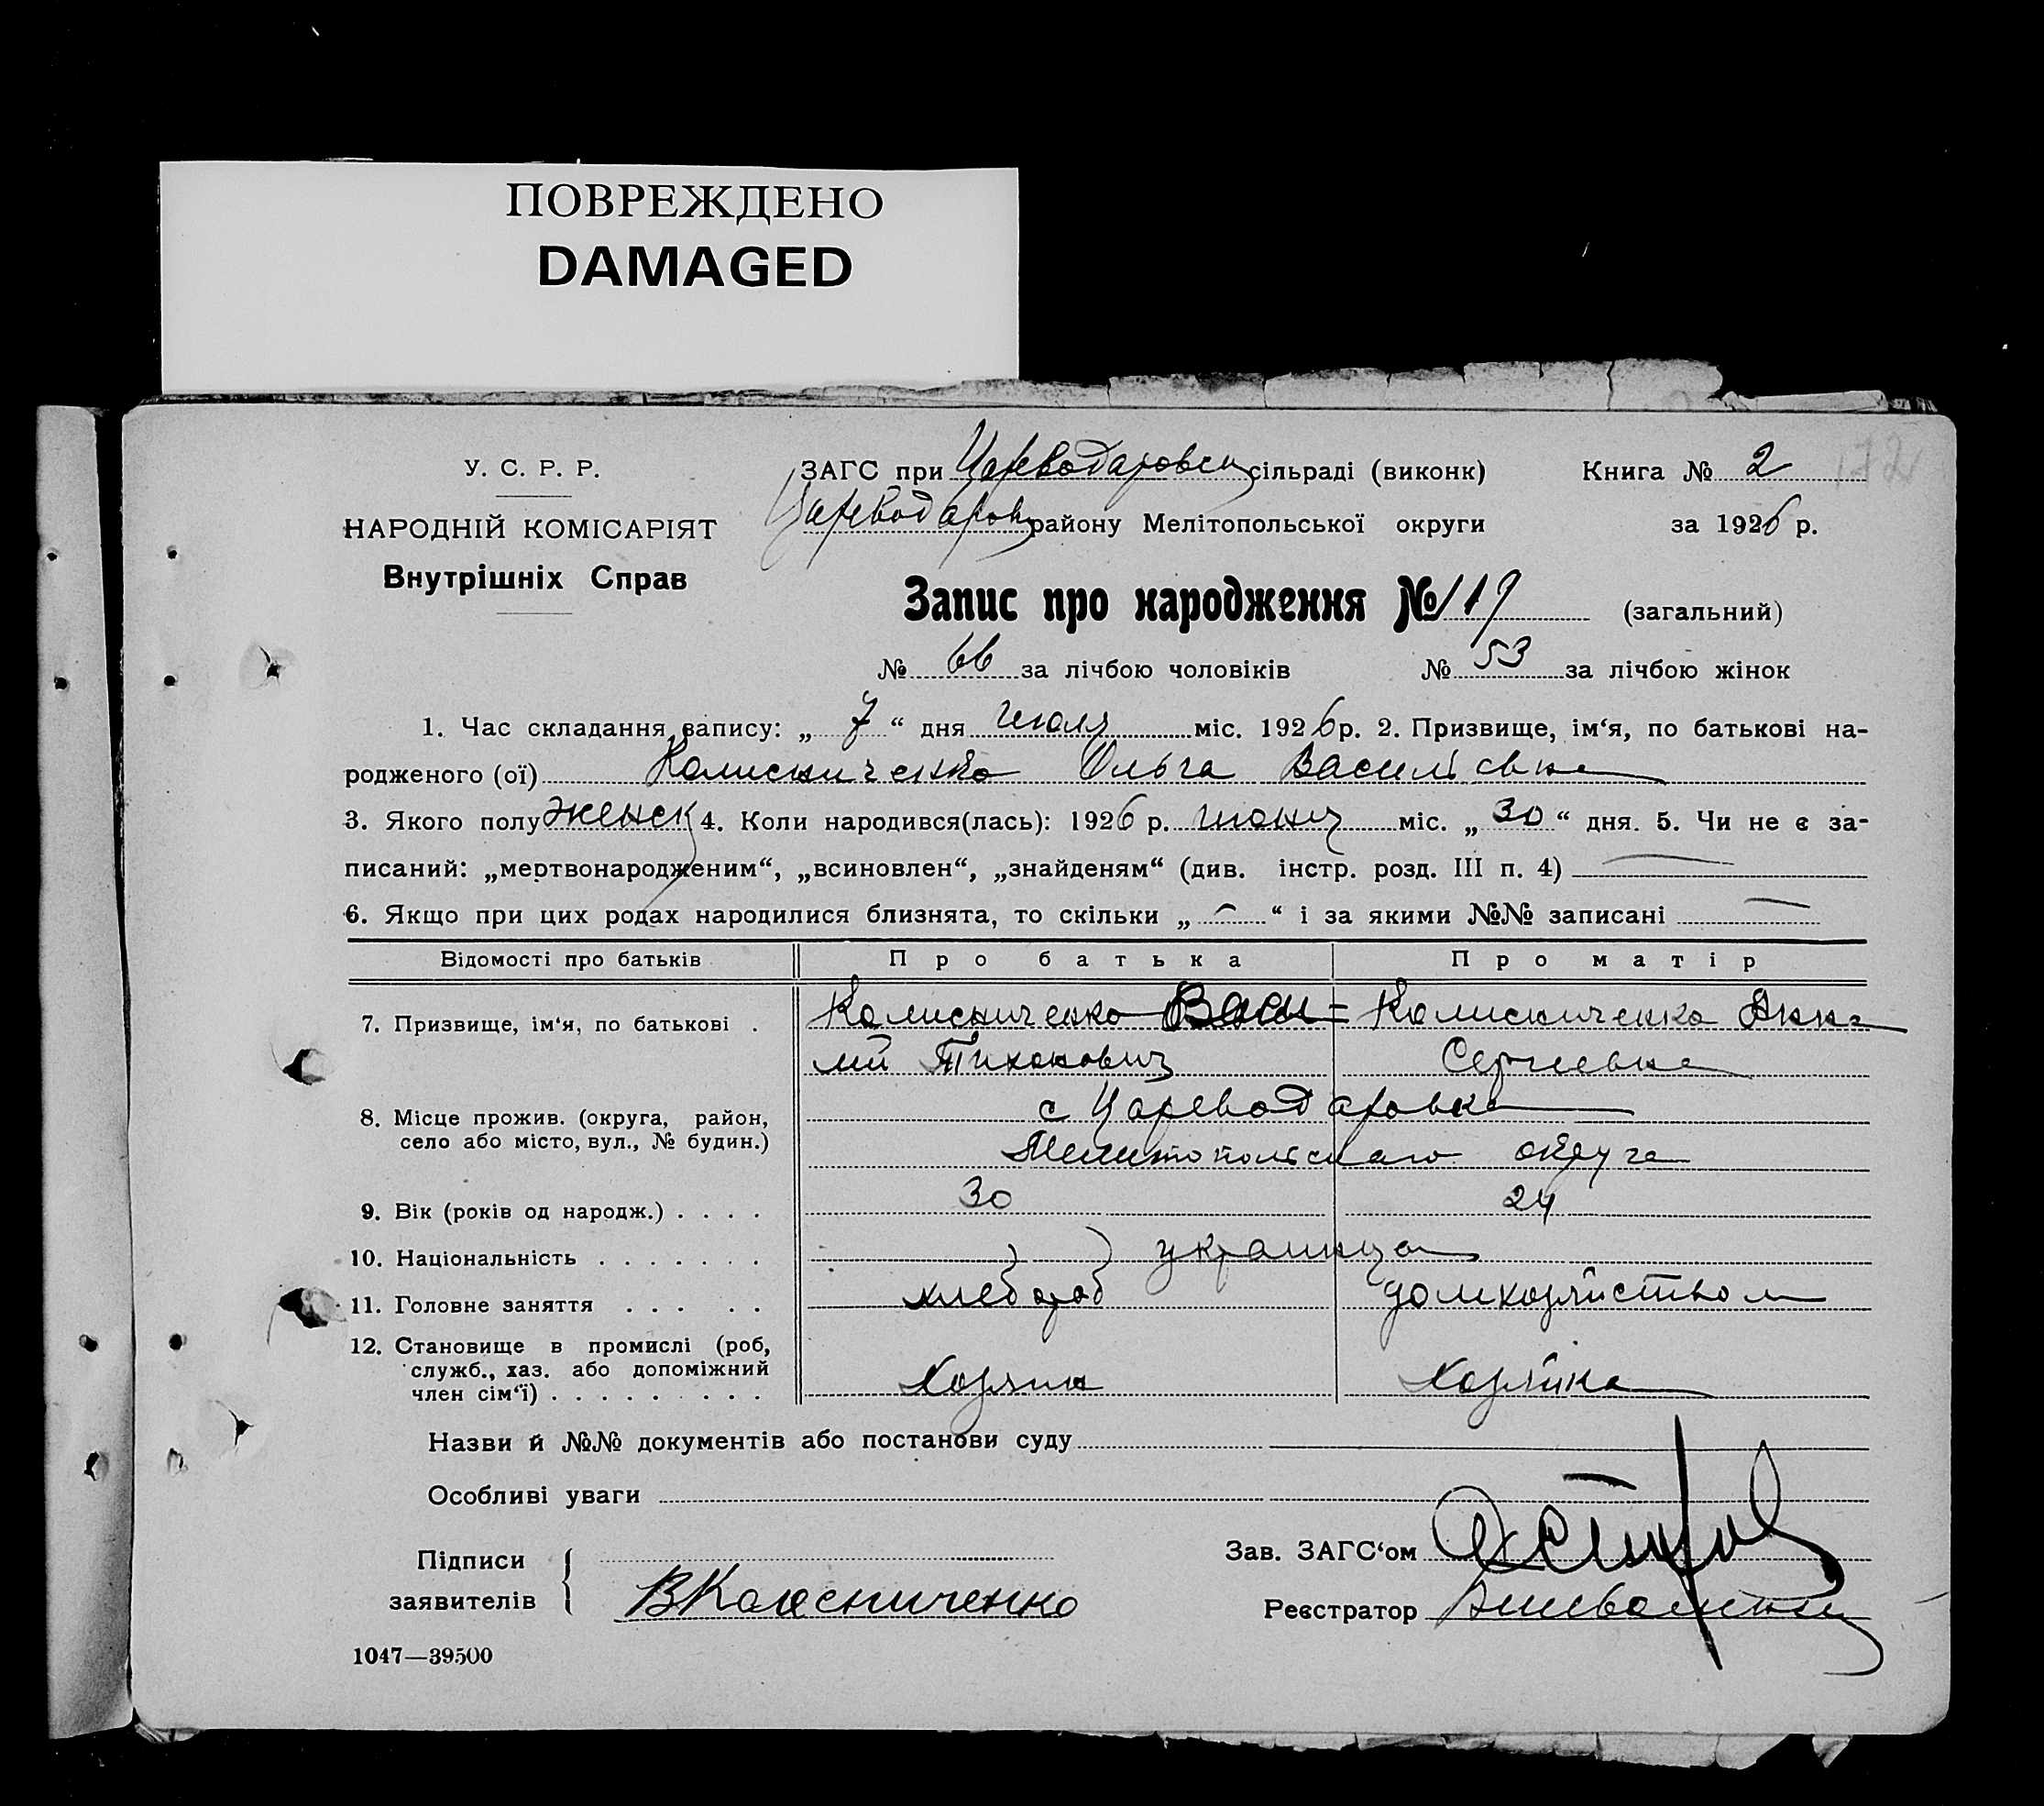 ПОВРЕЖДЕНО
DAMAGED
172
У. С. Р. Р.
НАРОДНІЙ КОМІСАРІЯТ
Внутрішніх Справ
ЗАГС при Цареводаровск сільраді (виконк) Книга № 2
Цареводаров району Мелітопольської округи за 1926 р.
Запис про народження № 119 (загальний)
№ 66 за лічбою чоловіків № 53 за лічбою жінок
1. Час складання запису: „ 7 “ дня Июля міс. 1926 р. 2. Призвище, ім‘я, по батькові на-
родженого (ої) Колисниченко Ольга Васильевна
3. Якого полу женск 4. Коли народився(лась): 1926 р. июня міс. „ 30 “ дня. 5. Чи не є за-
писаний: „мертвонародженим“, „всиновлен“, „знайденям“ (див. інстр. розд. III п. 4) —
6. Якщо при цих родах народилися близнята, то скільки „ — “ і за якими №№ записані —
Відомості про батьків Про батька Про матір
7. Призвище, ім‘я, по батькові . Колисниченко Васи= Колисниченко Анна
лий Тихонович Сергиевна
8. Місце прожив. (округа, район, с Цареводаровка
село або місто, вул., № будин.) Мелитопольскаго округа
9. Вік (років од народж.) . . . . 30 24
10. Національність . . . . . . . украинца
11. Головне заняття . . . . . хлебороб домхозяйством
12. Становище в промислі (роб,
служб., хаз. або допоміжний
член сім‘ї) . . . . . . . . . Хозяин Хозяйка
Назви й №№ документів або постанови суду
Особливі уваги
Підписи Зав. ЗАГС‘ом
заявителів { ВКолесниченко Реєстратор
1047—39500